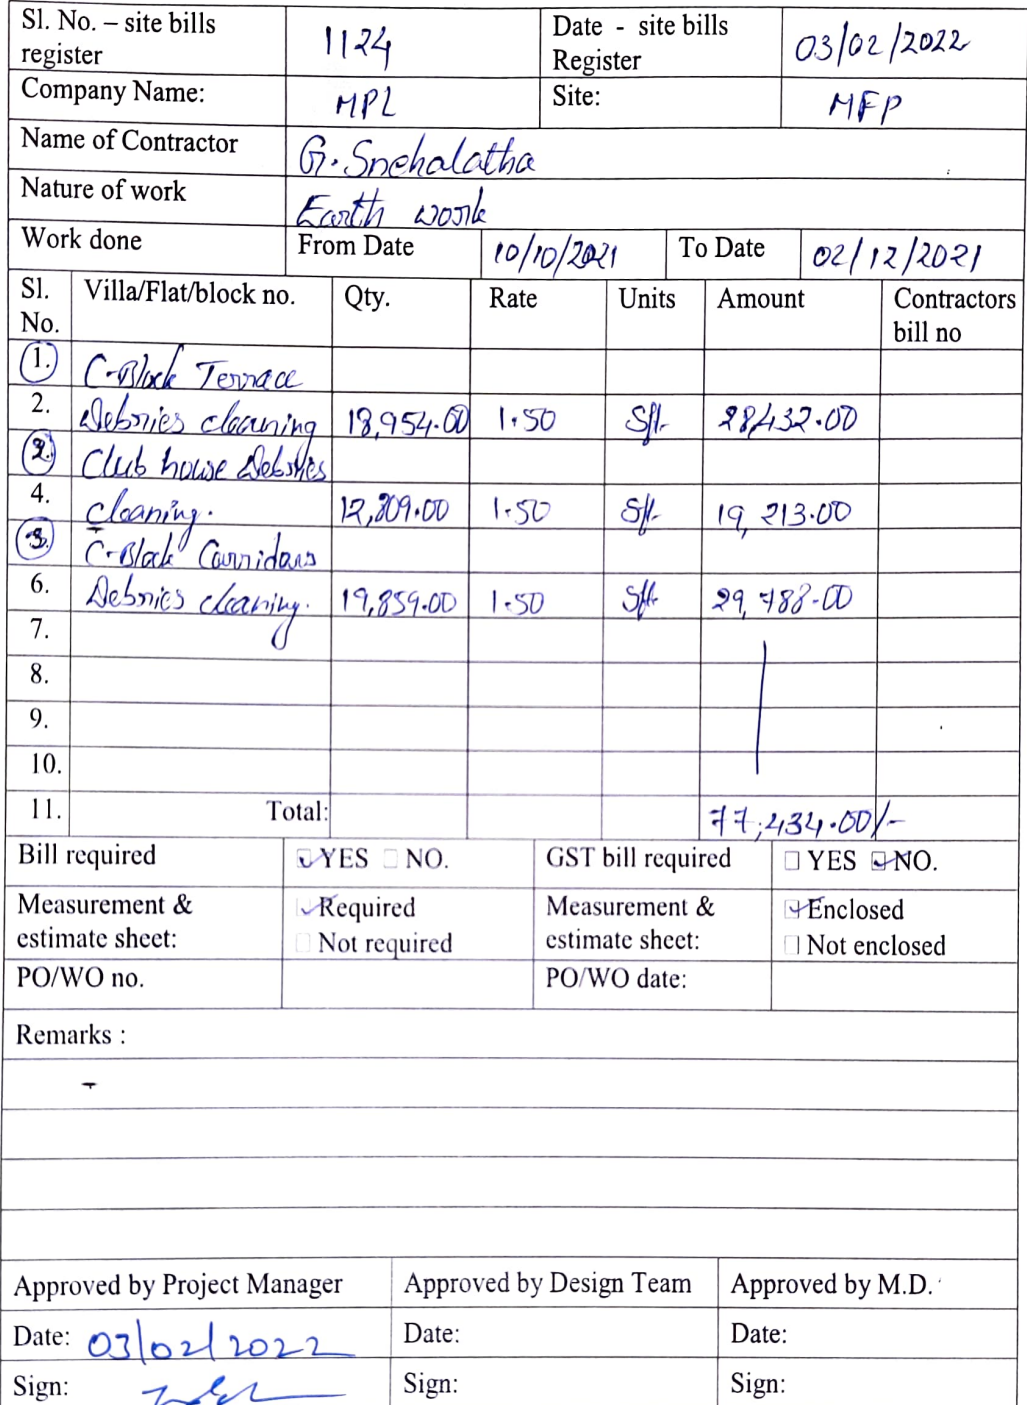 Sl. No. – site bills register 1124 Date - site bills Register 03/02/2022
Company Name: MPL Site: MFP
Name of Contractor G. Snehalatha
Nature of work Earth work
Work done From Date 10/10/2021 To Date 02/12/2021
Sl. No. Villa/Flat/block no. Qty. Rate Units Amount Contractors bill no
1. C-Block Terrace
2. Debries cleaning 18,954.00 1.50 Sft. 28,432.00
2. Club house Debries
4. cleaning. 12,809.00 1.50 Sft. 19,213.00
3. C-Block Corridors
6. Debries cleaning. 19,859.00 1.50 Sft. 29,788-00
7.
8.
9.
10.
11. Total: 77,434.00/-
Bill required YES NO. GST bill required YES NO.
Measurement & Required Measurement & Enclosed
estimate sheet: Not required estimate sheet: Not enclosed
PO/WO no. PO/WO date:
Remarks :
Approved by Project Manager Approved by Design Team Approved by M.D.
Date: 03/02/2022 Date: Date:
Sign: Sign: Sign: